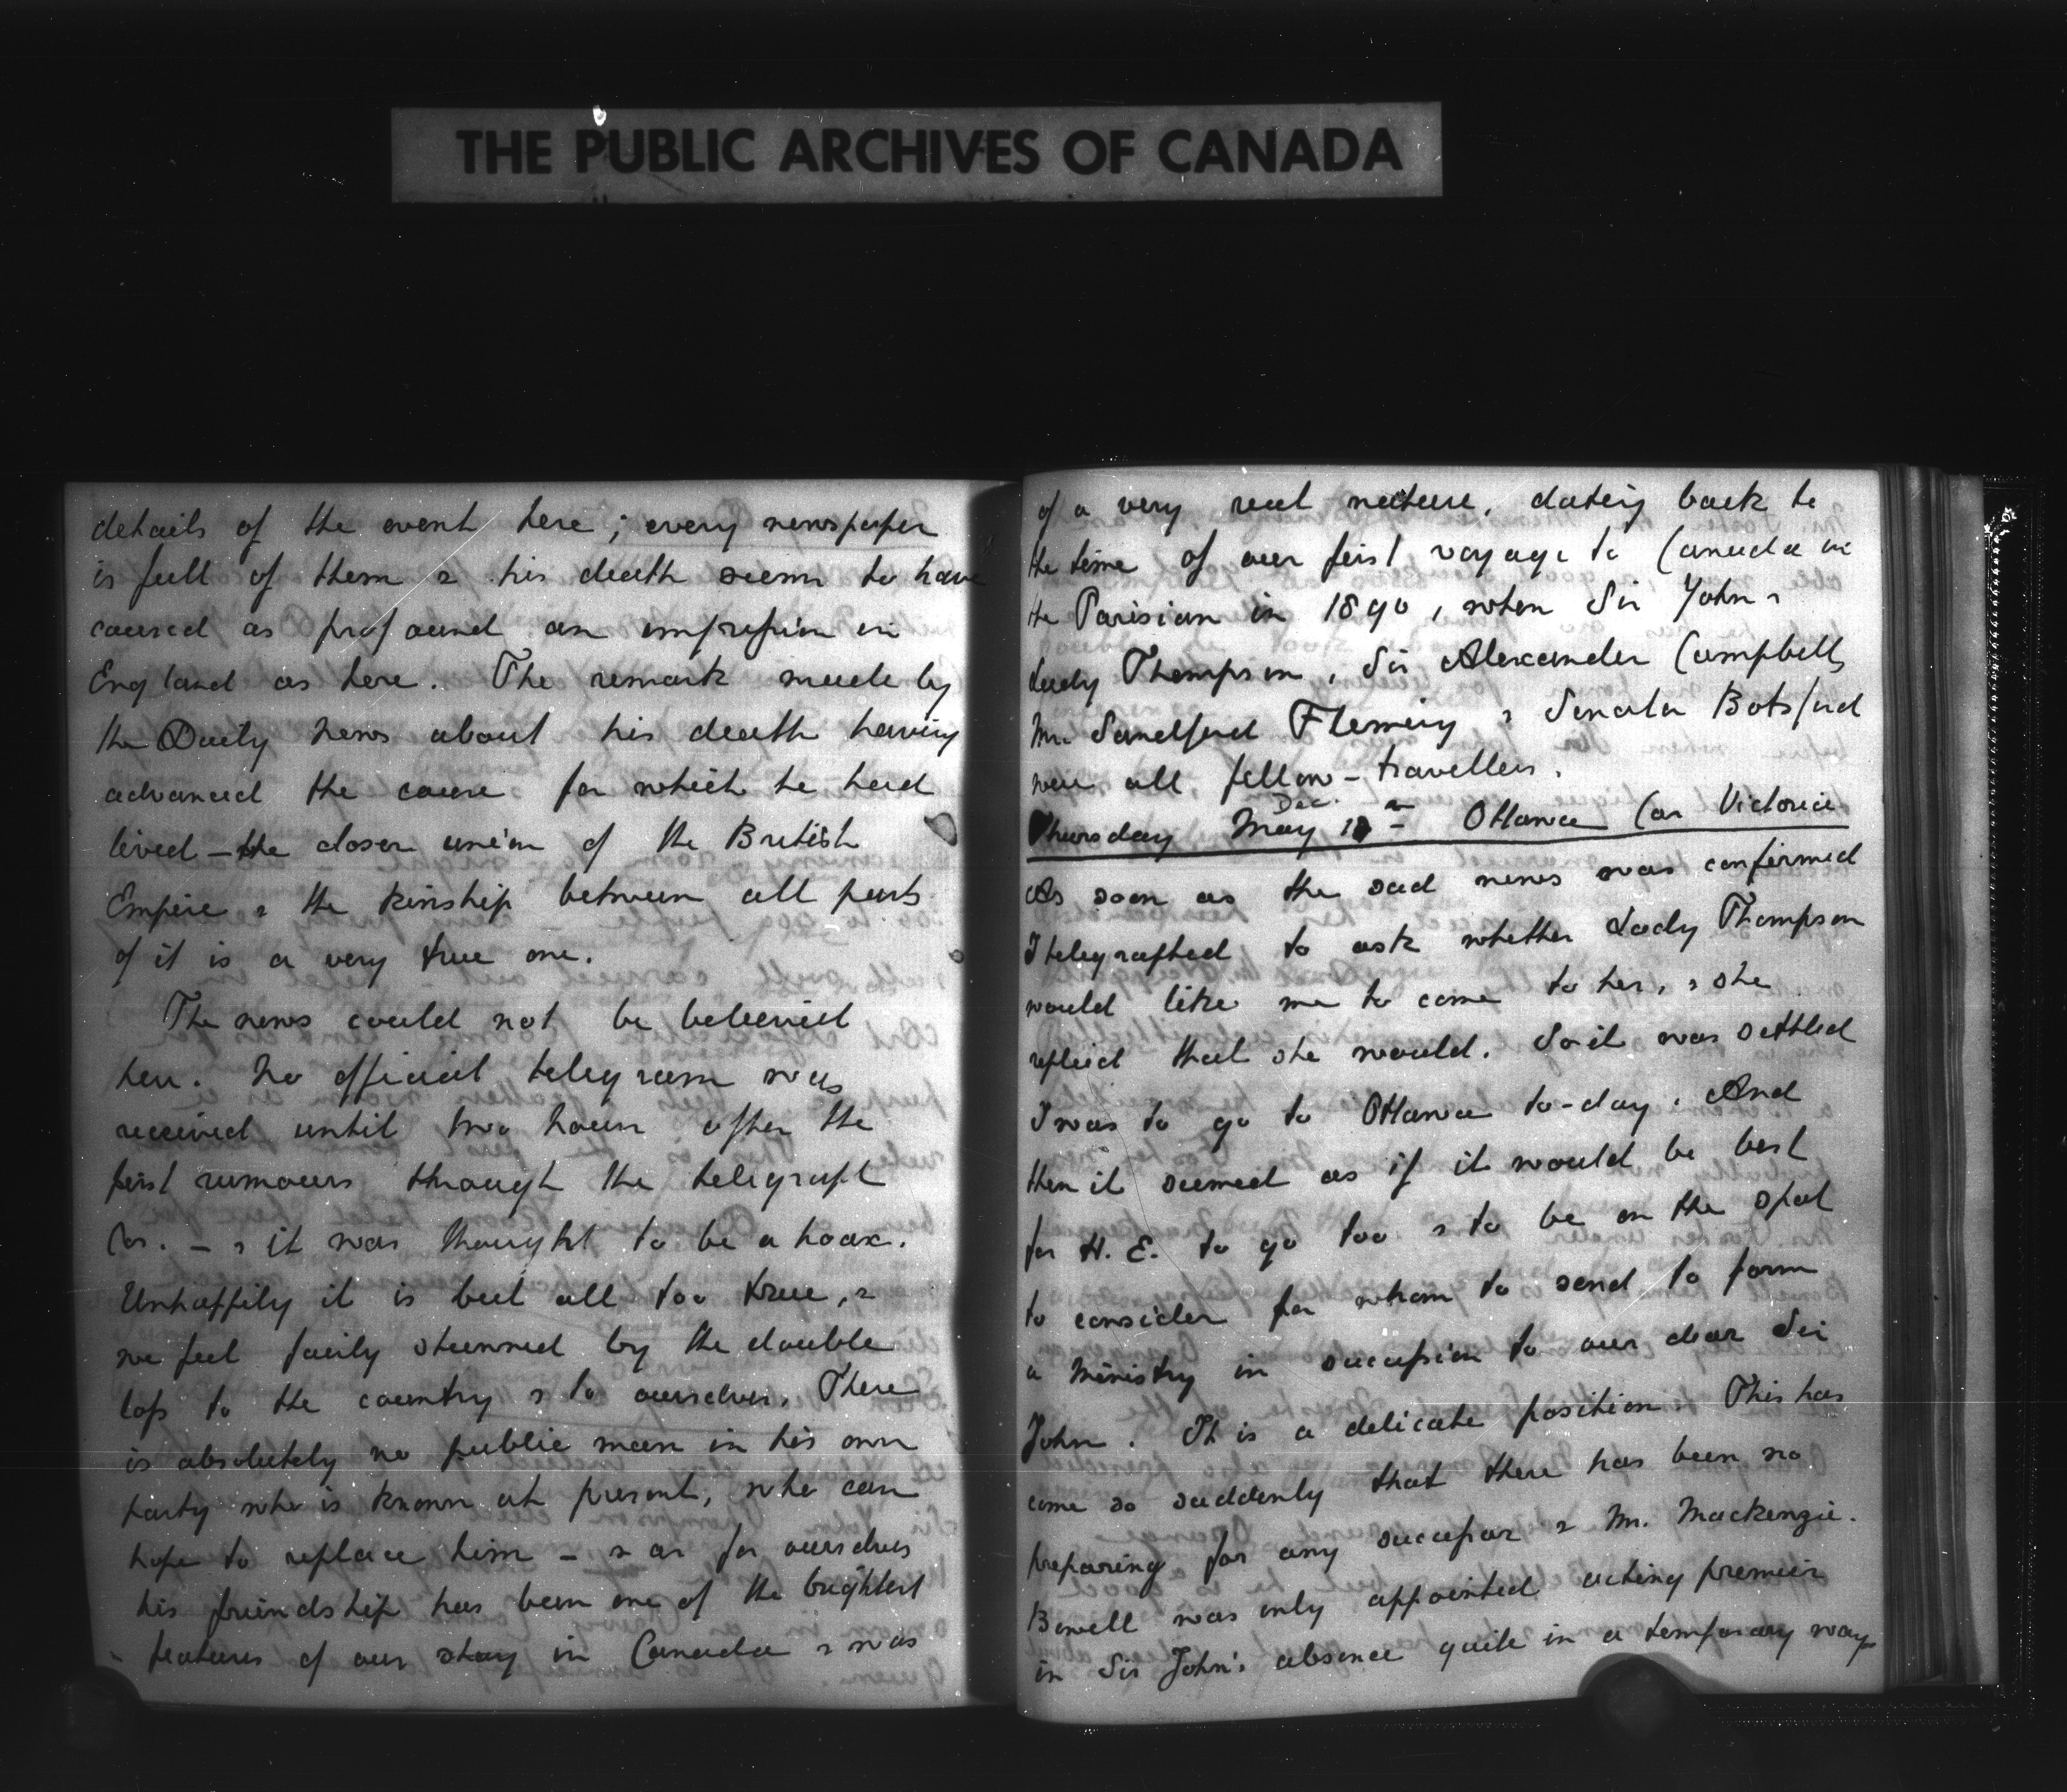 THE PUBLIC ARCHIVES OF CANADA
details of the event here; every newspaper
is full of them & his death seems to have
caused as profound an impression in
England as here. The remark made by
the Daily News about his death having
advanced the cause for which he had
lived – the closer union of the British
Empire & the kinship between all parts
of it is a very true one.
The news could not be believed
here. No official telegram was
received until two hours after the
first rumours through the telegraph
Co. – & it was thought to be a hoax.
Unhappily it is but all too true, &
we feel fairly stunned by the double
loss to the country & to ourselves. There
is absolutely no public man in his own
party who is known at present, who can
hope to replace him – & as for ourselves
his friendship has been one of the brightest
features of our stay in Canada & was
of a very real nature, dating back to
the time of our first voyage to Canada in
the Parisian in 1890, when Sir John &
Lady Thompson, Sir Alexander Campbell,
Mr. Sandford Fleming & Senator Botsford
were all fellow-travellers.
Dec.
Thursday May 13th Ottawa (ar Victoria
As soon as the sad news was confirmed
I telegraphed to ask whether Lady Thompson
would like me to come to her, & she
replied that she would. So it was settled
I was to go to Ottawa to-day. And
then it seemed as if it would be best
for H. E. to go too & to be on the spot
to consider for whom to send to form
a Ministry in succession to our dear Sir
John. It is a delicate position. This has
come so suddenly that there has been no
preparing for any successor & Mr. Mackenzie
Bowell was only appointed acting premier
in Sir John's absence quite in a temporary way